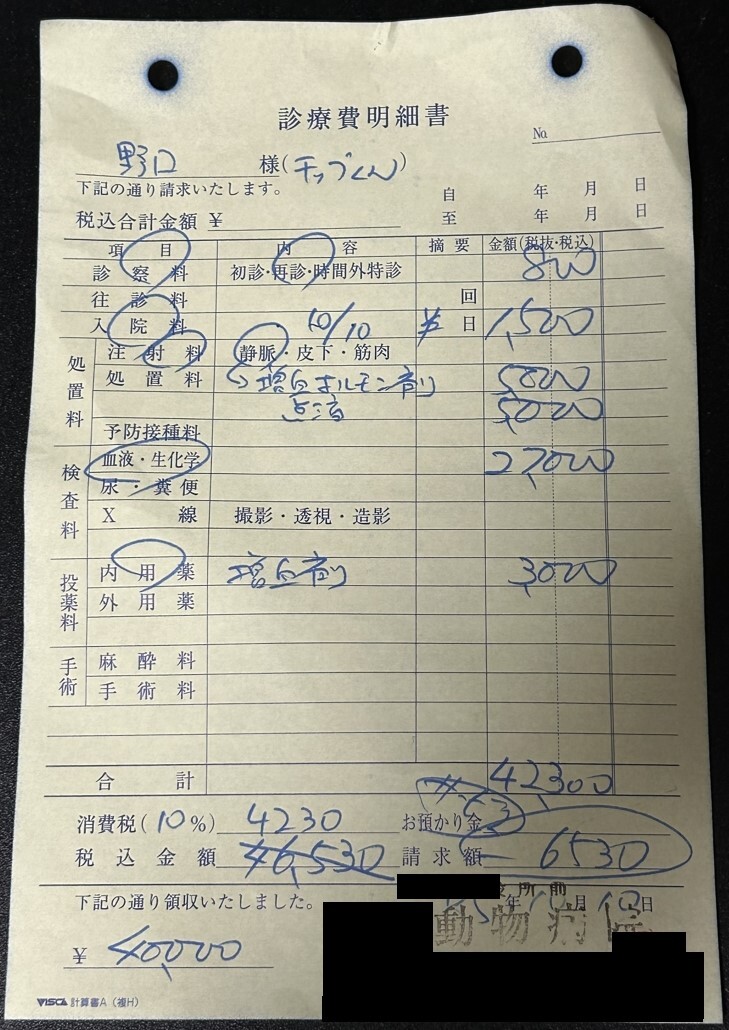 診療費明細書
No.
野口 様(チップくん)
下記の通り請求いたします。
自 年 月 日
税込合計金額 ¥
至 年 月 日
項目 内容 摘要 金額(税抜・税込)
診察料 初診・再診・時間外特診 800
往診料 回
入院料 10/10 日 1,500
処置料
注射料 静脈・皮下・筋肉
処置料 増血ホルモン剤 5000
点滴 5,000
予防接種料
検査料
血液・生化学 27,000
尿・糞便
X線 撮影・透視・造影
投薬料
内用薬 増血剤 3,000
外用薬
手術
麻酔料
手術料
合計 42,300
消費税(10%) 4230 お預かり金
税込金額 46,530 請求額 6530
下記の通り領収いたしました。 年 月 日
動物病院
¥ 40,000
VISCA 計算書A(複H)